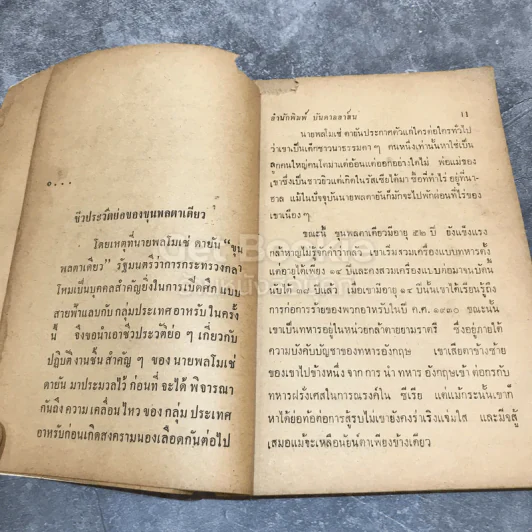 ๑...
ชีวประวัติย่อของขุนพลตาเดียว
โดยเหตุที่นายพลโมเช่ ดายัน "ขุน
พลตาเดียว" รัฐมนตรีว่าการกระทรวงกลา
โหมเป็นบุคคลสำคัญยิ่งในการเปิดศึก แบบ
สายฟ้าแลบกับ กลุ่มประเทศ อาหรับ ในครั้ง
นี้ จึงขอนำเอาชีวประวัติย่อ ๆ เกี่ยวกับ
ปฏิบัติ งานชิ้น สำคัญ ๆ ของ นายพลโมเช่
ดายัน มาประมวลไว้ ก่อนที่ จะได้ พิจารณา
กันถึง ความ เคลื่อน ไหว ของ กลุ่ม ประเทศ
อาหรับก่อนเกิดสงครามนองเลือดกันต่อไป
สำนักพิมพ์ บันดาลสาส์น 11
นายพลโมเช่ ดายันประกาศตัวแก่ใครต่อใครทั่วไป
ว่าเขาเป็นเด็กชาวนาธรรมดา ๆ คนหนึ่งเท่านั้นหาใช่เป็น
ลูกคนใหญ่คนโตมาแต่อ้อนแต่ออกอย่างใดไม่ พ่อแม่ของ
เขาซึ่งเป็นชาวยิวแต่เกิดในรัสเซียได้มา ซื้อที่ทำไร่ อยู่ที่นา-
ฮาลาล แม้ในปัจจุบันนายพลดายันก็มักจะไปพักผ่อนที่ไร่ของ
เขาเนือง ๆ
ขณะนี้ ขุนพลตาเดียวมีอายุ ๕๒ ปี ยังแข็งแรง
กล้าหาญไม่รู้จักคำว่ากลัว เขาเริ่มรวมเครื่องแบบทหารตั้ง
แต่อายุได้เพียง ๑๔ ปีและคงสวมเครื่องแบบต่อมาจนบัดนี้
นับได้ ๓๘ ปีแล้ว เมื่อเขามีอายุ ๑๔ ปีนั้นเขาได้เรียนรู้ถึง
การก่อการร้ายของพวกอาหรับในปี ค.ศ. ๑๙๓๐ ขณะนั้น
เขาเป็นทหารอยู่ในหน่วยกล้าตายยามราตรี ซึ่งอยู่ภายใต้
ความบังคับบัญชาของทหารอังกฤษ เขาเสียตาข้างซ้าย
ของเขาไปข้างหนึ่ง จาก การ นำ ทหาร อังกฤษเข้า ต่อกรกับ
ทหารฝรั่งเศสในการณรงค์ใน ซีเรีย แต่แม้กระนั้นเขาก็
หาได้ย่อท้อต่อการสู้รบไม่เขายังคงร่าเริงแจ่มใส และมีจสู้
เสมอแม้จะเหลือนัยน์ตาเพียงข้างเดียว